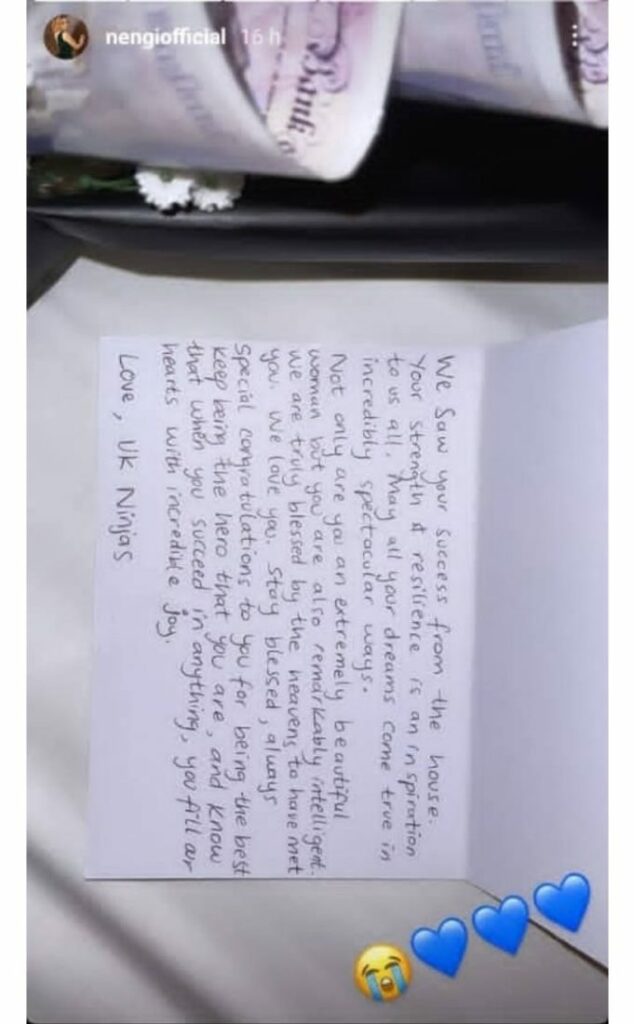 nengiofficial 16 h
Bank o
We saw your success from the house.
Your strength & resilience is an inspiration
to us all. May all your dreams come true in
incredibly spectacular ways.
Not only are you an extremely beautiful
woman but you are also remarkably intelligent.
We are truly blessed by the heavens to have met
you. We love you. Stay blessed, always
Special congratulations to you for being the best
keep being the hero that you are, and know
that when you succeed in anything, you fill our
hearts with incredible joy.
Love, UK Ninjas